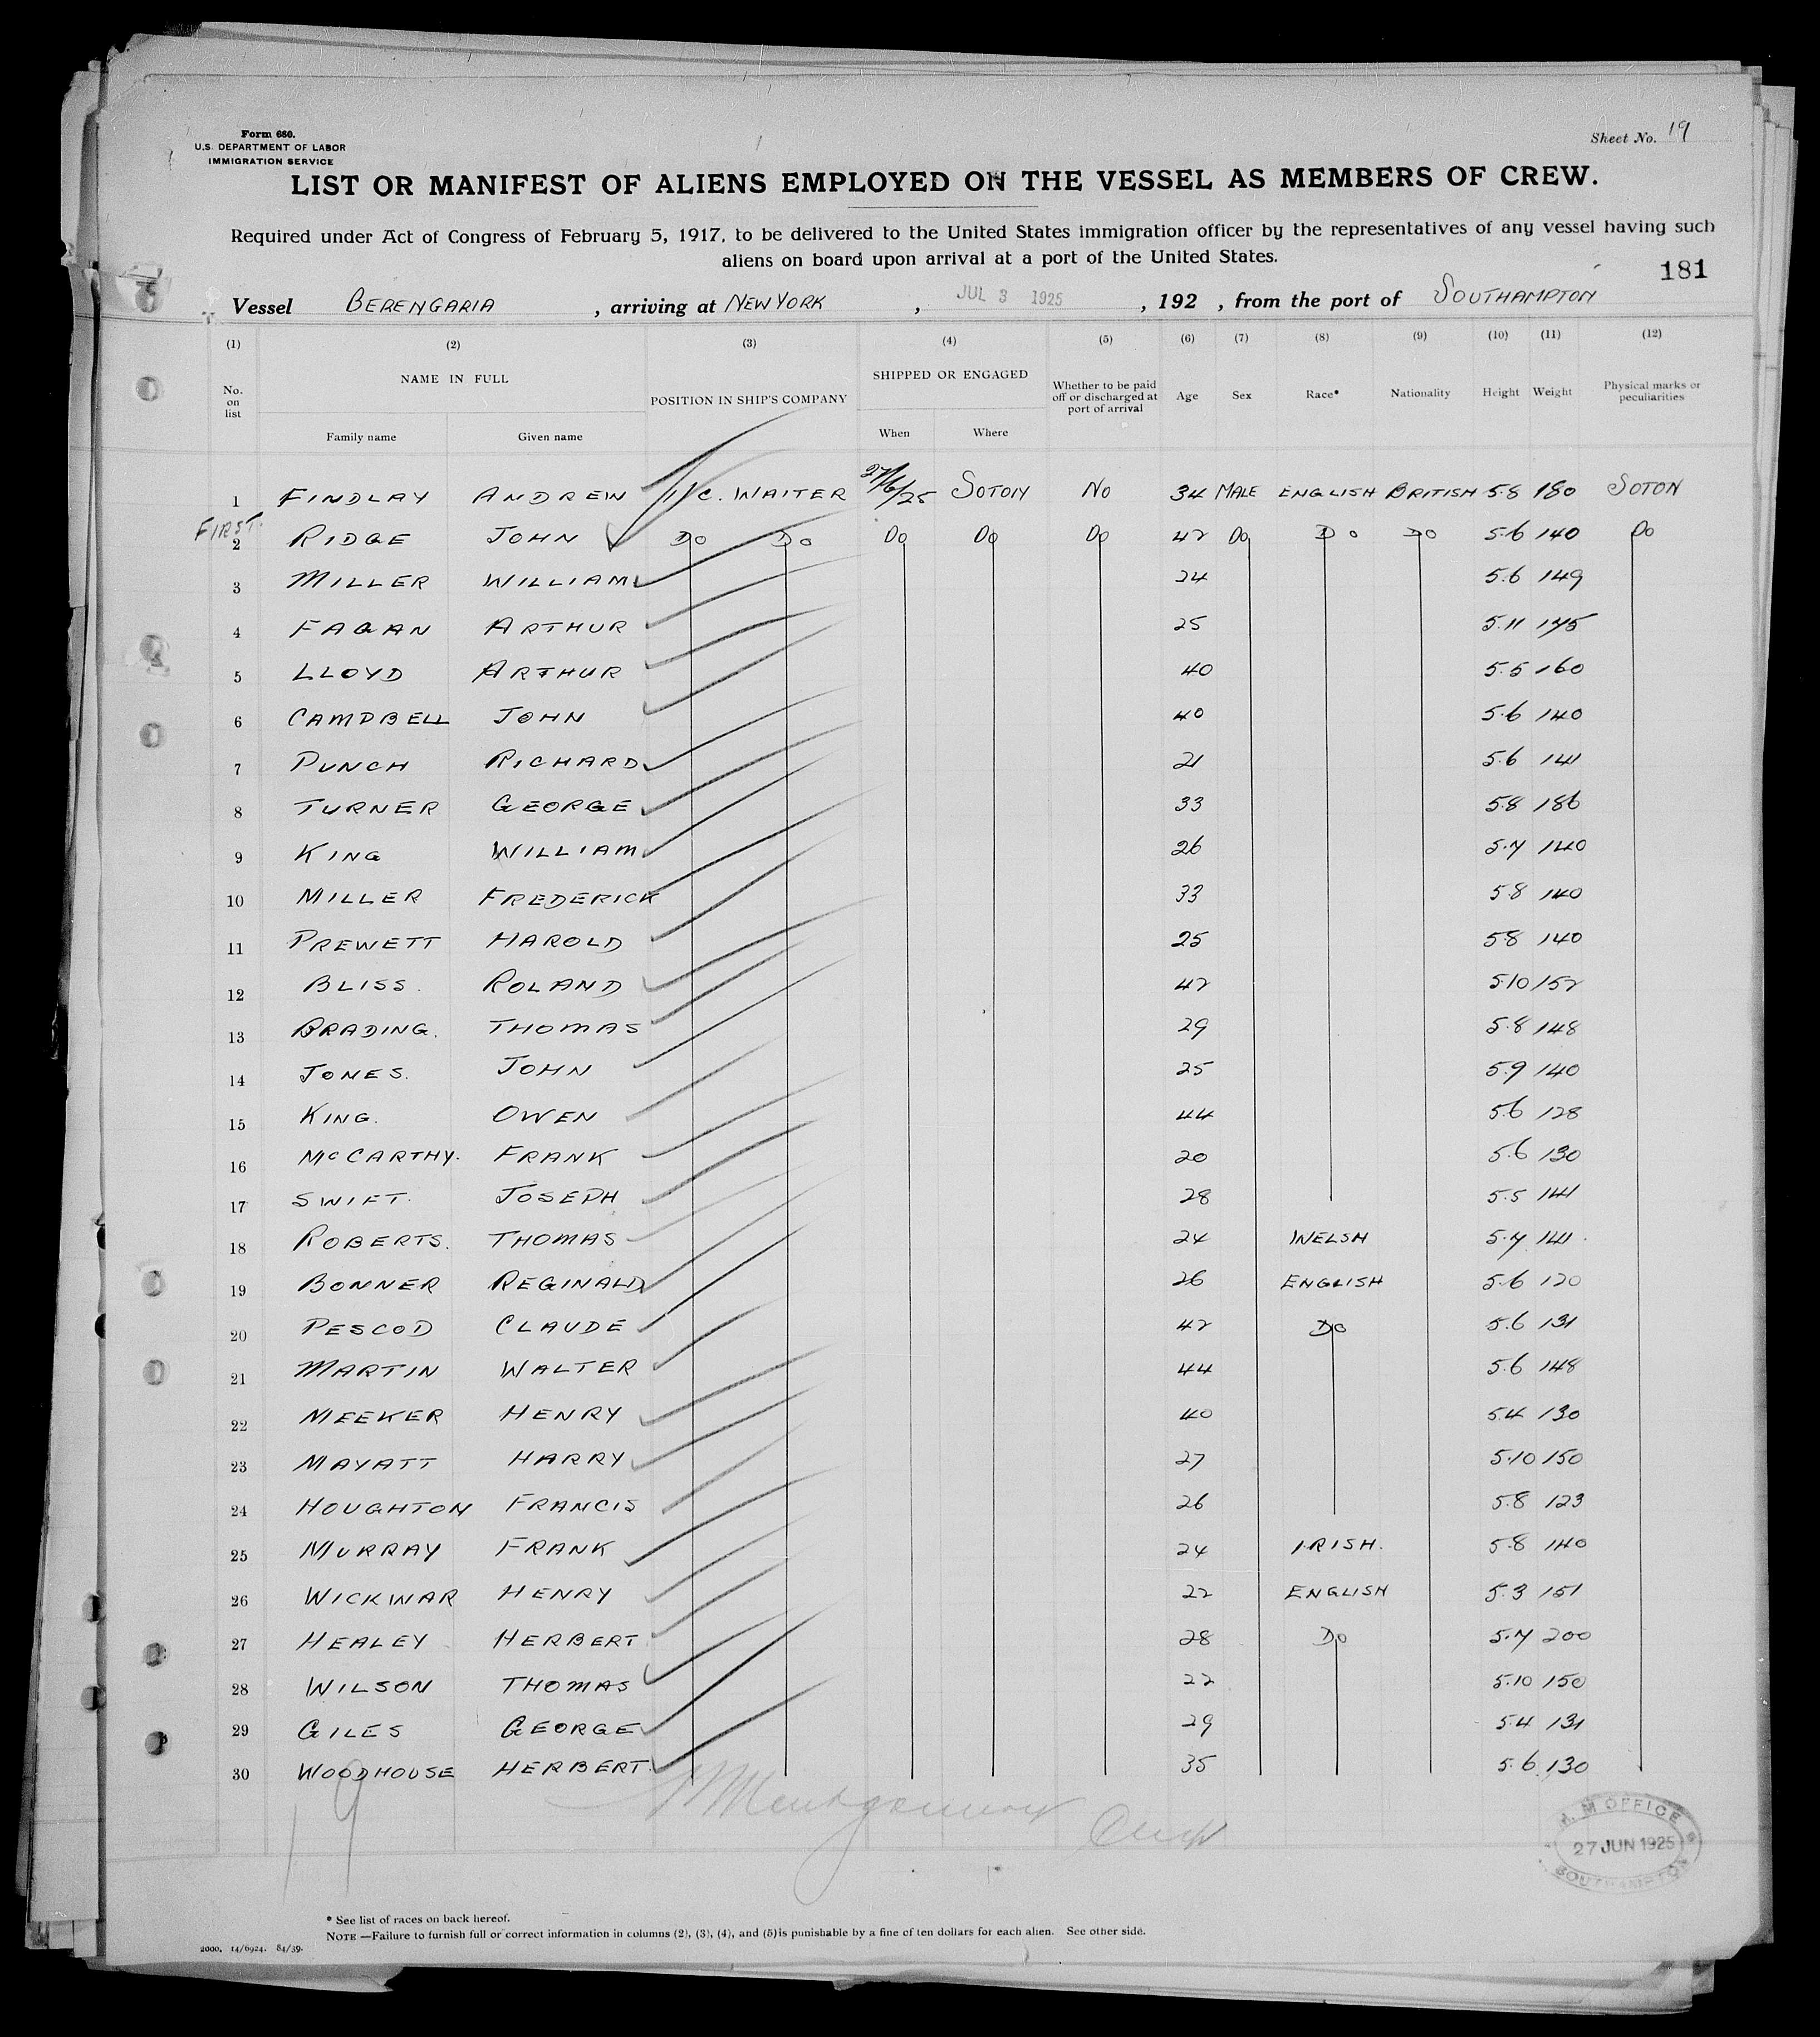 Form 680.
U.S. DEPARTMENT OF LABOR
IMMIGRATION SERVICE
Sheet No. 19
LIST OR MANIFEST OF ALIENS EMPLOYED ON THE VESSEL AS MEMBERS OF CREW.
Required under Act of Congress of February 5, 1917, to be delivered to the United States immigration officer by the representatives of any vessel having such
aliens on board upon arrival at a port of the United States.
181
Vessel BERENGARIA , arriving at NEW YORK , JUL 3 1925 , 192 , from the port of SOUTHAMPTON
(1) (2) (3) (4) (5) (6) (7) (8) (9) (10) (11) (12)
No. on list NAME IN FULL Family name Given name POSITION IN SHIP'S COMPANY SHIPPED OR ENGAGED When Where Whether to be paid off or discharged at port of arrival Age Sex Race* Nationality Height Weight Physical marks or peculiarities
1 FINDLAY ANDREW 1/C. WAITER 27/6/25 SOTON NO 34 MALE ENGLISH BRITISH 5.8 180 SOTON
FIRST.
2 RIDGE JOHN DO DO DO DO DO 42 DO DO DO 5.6 140 DO
3 MILLER WILLIAM 24 5.6 149
4 FAGAN ARTHUR 25 5.11 175
5 LLOYD ARTHUR 40 5.5 160
6 CAMPBELL JOHN 40 5.6 140
7 PUNCH RICHARD 21 5.6 141
8 TURNER GEORGE 33 5.8 186
9 KING WILLIAM 26 5.7 140
10 MILLER FREDERICK 33 5.8 140
11 PREWETT HAROLD 25 5.8 140
12 BLISS. ROLAND 42 5.10 152
13 BRADING. THOMAS 29 5.8 148
14 JONES. JOHN 25 5.9 140
15 KING. OWEN 44 5.6 128
16 McCARTHY. FRANK 20 5.6 130
17 SWIFT. JOSEPH 28 5.5 141
18 ROBERTS. THOMAS 24 WELSH 5.7 141
19 BONNER REGINALD 26 ENGLISH 5.6 120
20 PESCOD CLAUDE 42 DO 5.6 131
21 MARTIN WALTER 44 5.6 148
22 MEEKER HENRY 40 5.4 130
23 MAYATT HARRY 27 5.10 150
24 HOUGHTON FRANCIS 26 5.8 123
25 MURRAY FRANK 24 IRISH. 5.8 140
26 WICKWAR HENRY 22 ENGLISH 5.3 151
27 HEALEY HERBERT 28 DO 5.7 200
28 WILSON THOMAS 22 5.10 150
29 GILES GEORGE 29 5.4 131
30 WOODHOUSE HERBERT. 35 5.6 130
19 Montgomery
M. M OFFICE
27 JUN 1925
SOUTHAMPTON
* See list of races on back hereof.
NOTE —Failure to furnish full or correct information in columns (2), (3), (4), and (5) is punishable by a fine of ten dollars for each alien. See other side.
2000. 14/6924. 84/39.